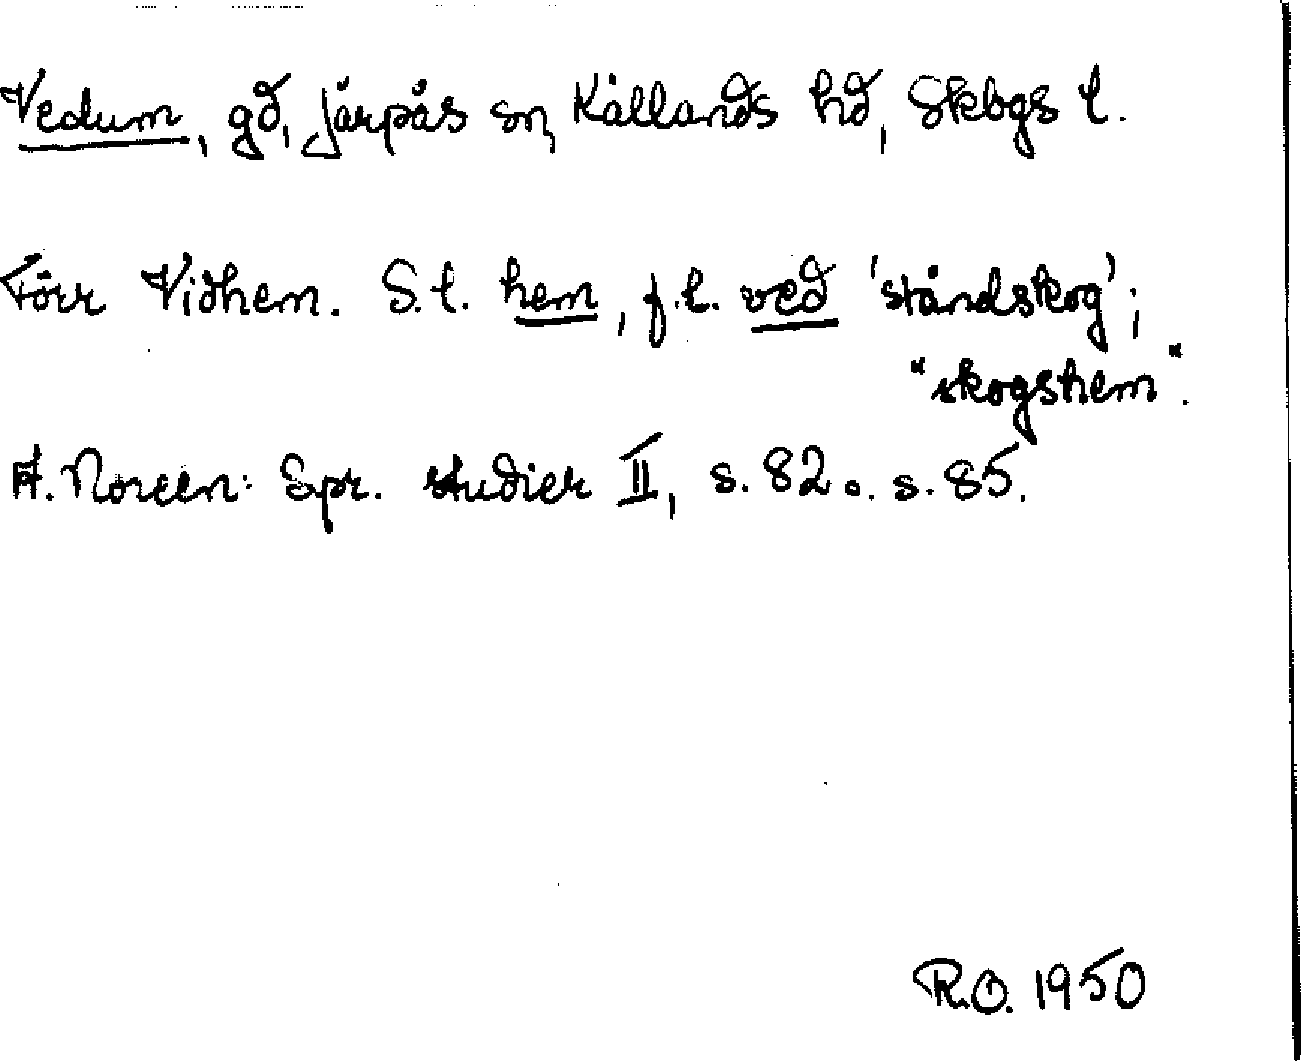 Vedum, gd, Järpås sn, Kållands hd, Skbgs l.
Förr Vidhem. S.l. hem, f.l. ved 'ståndskog';
"skogshem".
A. Noreen: Spr. studier II, s. 82 o. s. 85.
R.O. 1950